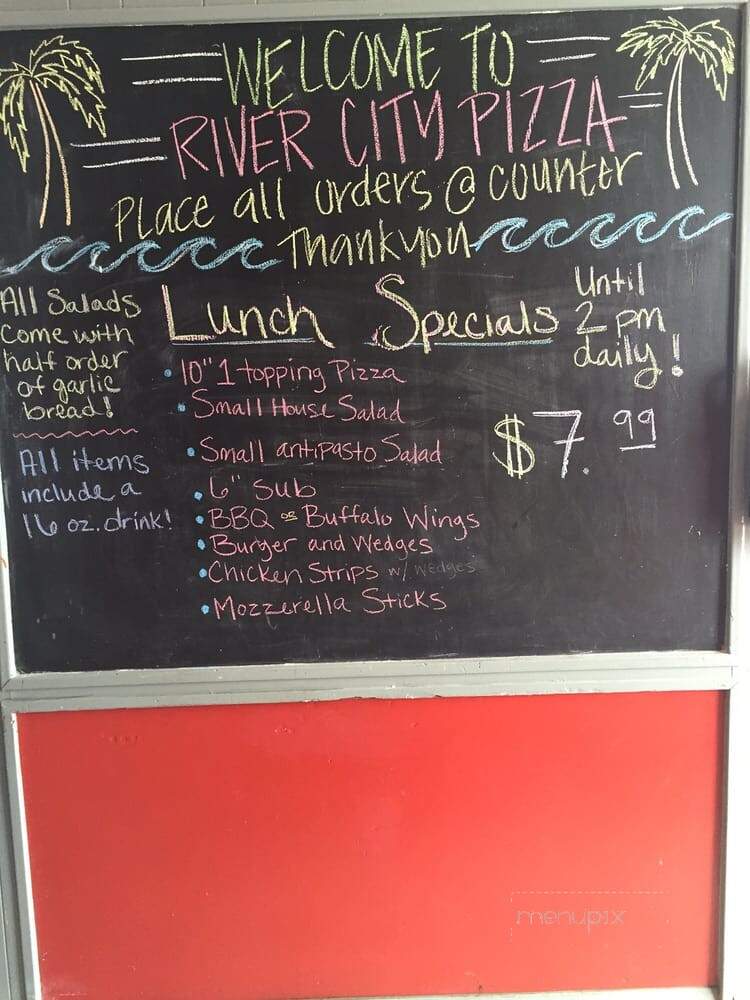 WELCOME TO
RIVER CITY PIZZA
Place all orders @ counter
Thankyou
All Salads
come with
half order
of garlic
bread!
All items
include a
16 oz. drink!
Lunch Specials
Until
2 pm
daily!
• 10" 1 topping Pizza
• Small House Salad
• Small antipasto Salad
• 6" Sub
• BBQ or Buffalo Wings
• Burger and Wedges
• Chicken Strips w/ wedges
• Mozzerella Sticks
$7.99
menupix